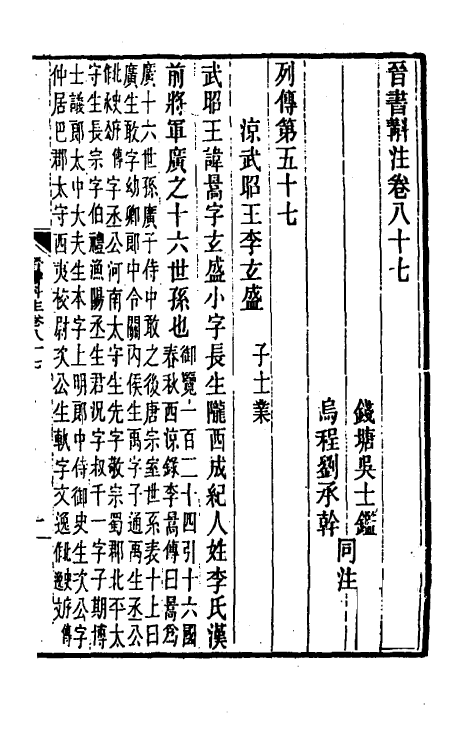 晉書斠注卷八十七
錢塘吳士鑑
烏程劉承幹
同注
列傳第五十七
涼武昭王李玄盛 子士業
武昭王諱暠字玄盛小字長生隴西成紀人姓李氏漢
前將軍廣之十六世孫也
御覽一百二十四引十六國
春秋西涼錄李暠傳曰暠爲
廣十六世孫廣子侍中敢之後唐宗室世系表十上曰
廣生敢字幼卿郎中令關內侯生禹字子通禹生丞公
北史
作承
序傳
字丞公河南太守生先字敬宗蜀郡北平太
守生長宗字伯禮漁陽丞生君況字叔千一字子期博
士議郎太中大夫生本字上明郎中侍御史生次公字
仲居巴郡太守西夷校尉次公生軌字文逸
北史序傳
作逸文